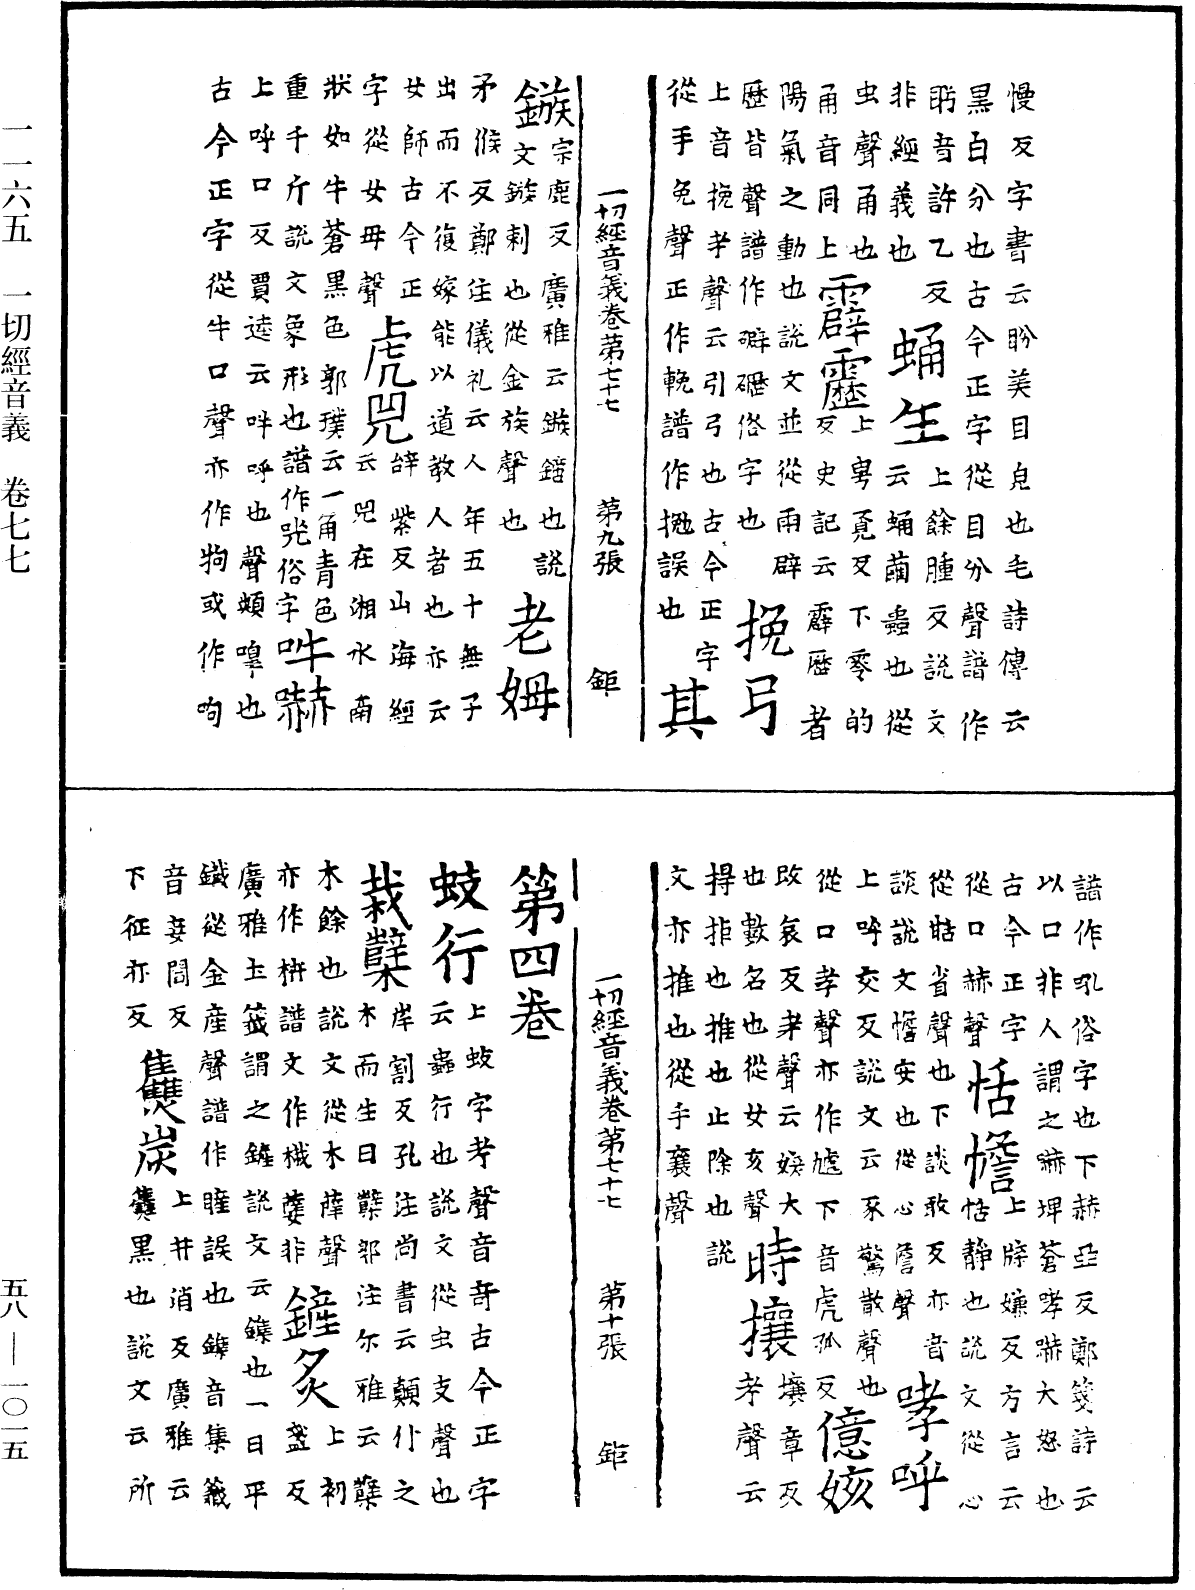 一一六五　一切經音義　卷七七
慢反字書云盼美目皃也毛詩傳云
黑白分也古今正字從目分聲譜作
眄音許乙反
非經義也
蛹生
上餘腫反說文
云蛹繭蟲也從
虫聲甬也
甬音同上
霹靂
上㽝覓反下零的
反史記云霹歷者
陽氣之動也說文並從雨辟
歷皆聲譜作礔礰俗字也
挽弓
上音挽考聲云引弓也古今正字
從手免聲正作輓譜作㧓誤也
其
一切經音義卷第七十七　第九張　鉅
鏃
宗鹿反廣雅云鏃鏑也說
文鏃剌也從金族聲也
老姆
矛候反鄭注儀礼云人年五十無子
出而不復嫁能以道教人者也亦云
女師古今正
字從女毋聲
虎兕
辝紫反山海經
云兕在湘水南
狀如牛蒼黑色郭璞云一角青色
重千斤說文象形也譜作兕俗字
吽嚇
上呼口反賈逵云吽呼也聲頗嘷也
古今正字從牛口聲亦作㸸或作呴
譜作吼俗字也下赫亞反鄭箋詩云
以口非人謂之嚇埤蒼哮嚇大怒也
古今正字
從口赫聲
恬憺
上牒嫌反方言云
恬靜也說文從心
從甛省聲也下談敢反亦音
談說文憺安也從心詹聲
哮呼
上哮交反說文云豕驚散聲也
從口孝聲亦作虓下音虎孤反
億姟
改哀反考聲云姟大
也數名也從女亥聲
時攘
壤章反
考聲云
揖拒也推也止除也說
文亦推也從手襄聲
一切經音義卷第七十七　第十張　鉅
第四卷
蚑行
上蚑字考聲音奇古今正字
云蟲行也說文從虫支聲也
栽蘖
岸割反孔注尚書云顛仆之
木而生曰蘖郭注尔雅云蘖
木餘也說文從木薛聲
亦作枿譜文作檝葼非
鏟炙
上初
盞反
廣雅玉篇謂之鏟說文云鏶也一曰平
鐵從金產聲譜作䁪誤也鏶音集籤
音妾閻反
下征亦反
雧炭
上井消反廣雅云
䕼黑也說文云所
五八—一〇一五